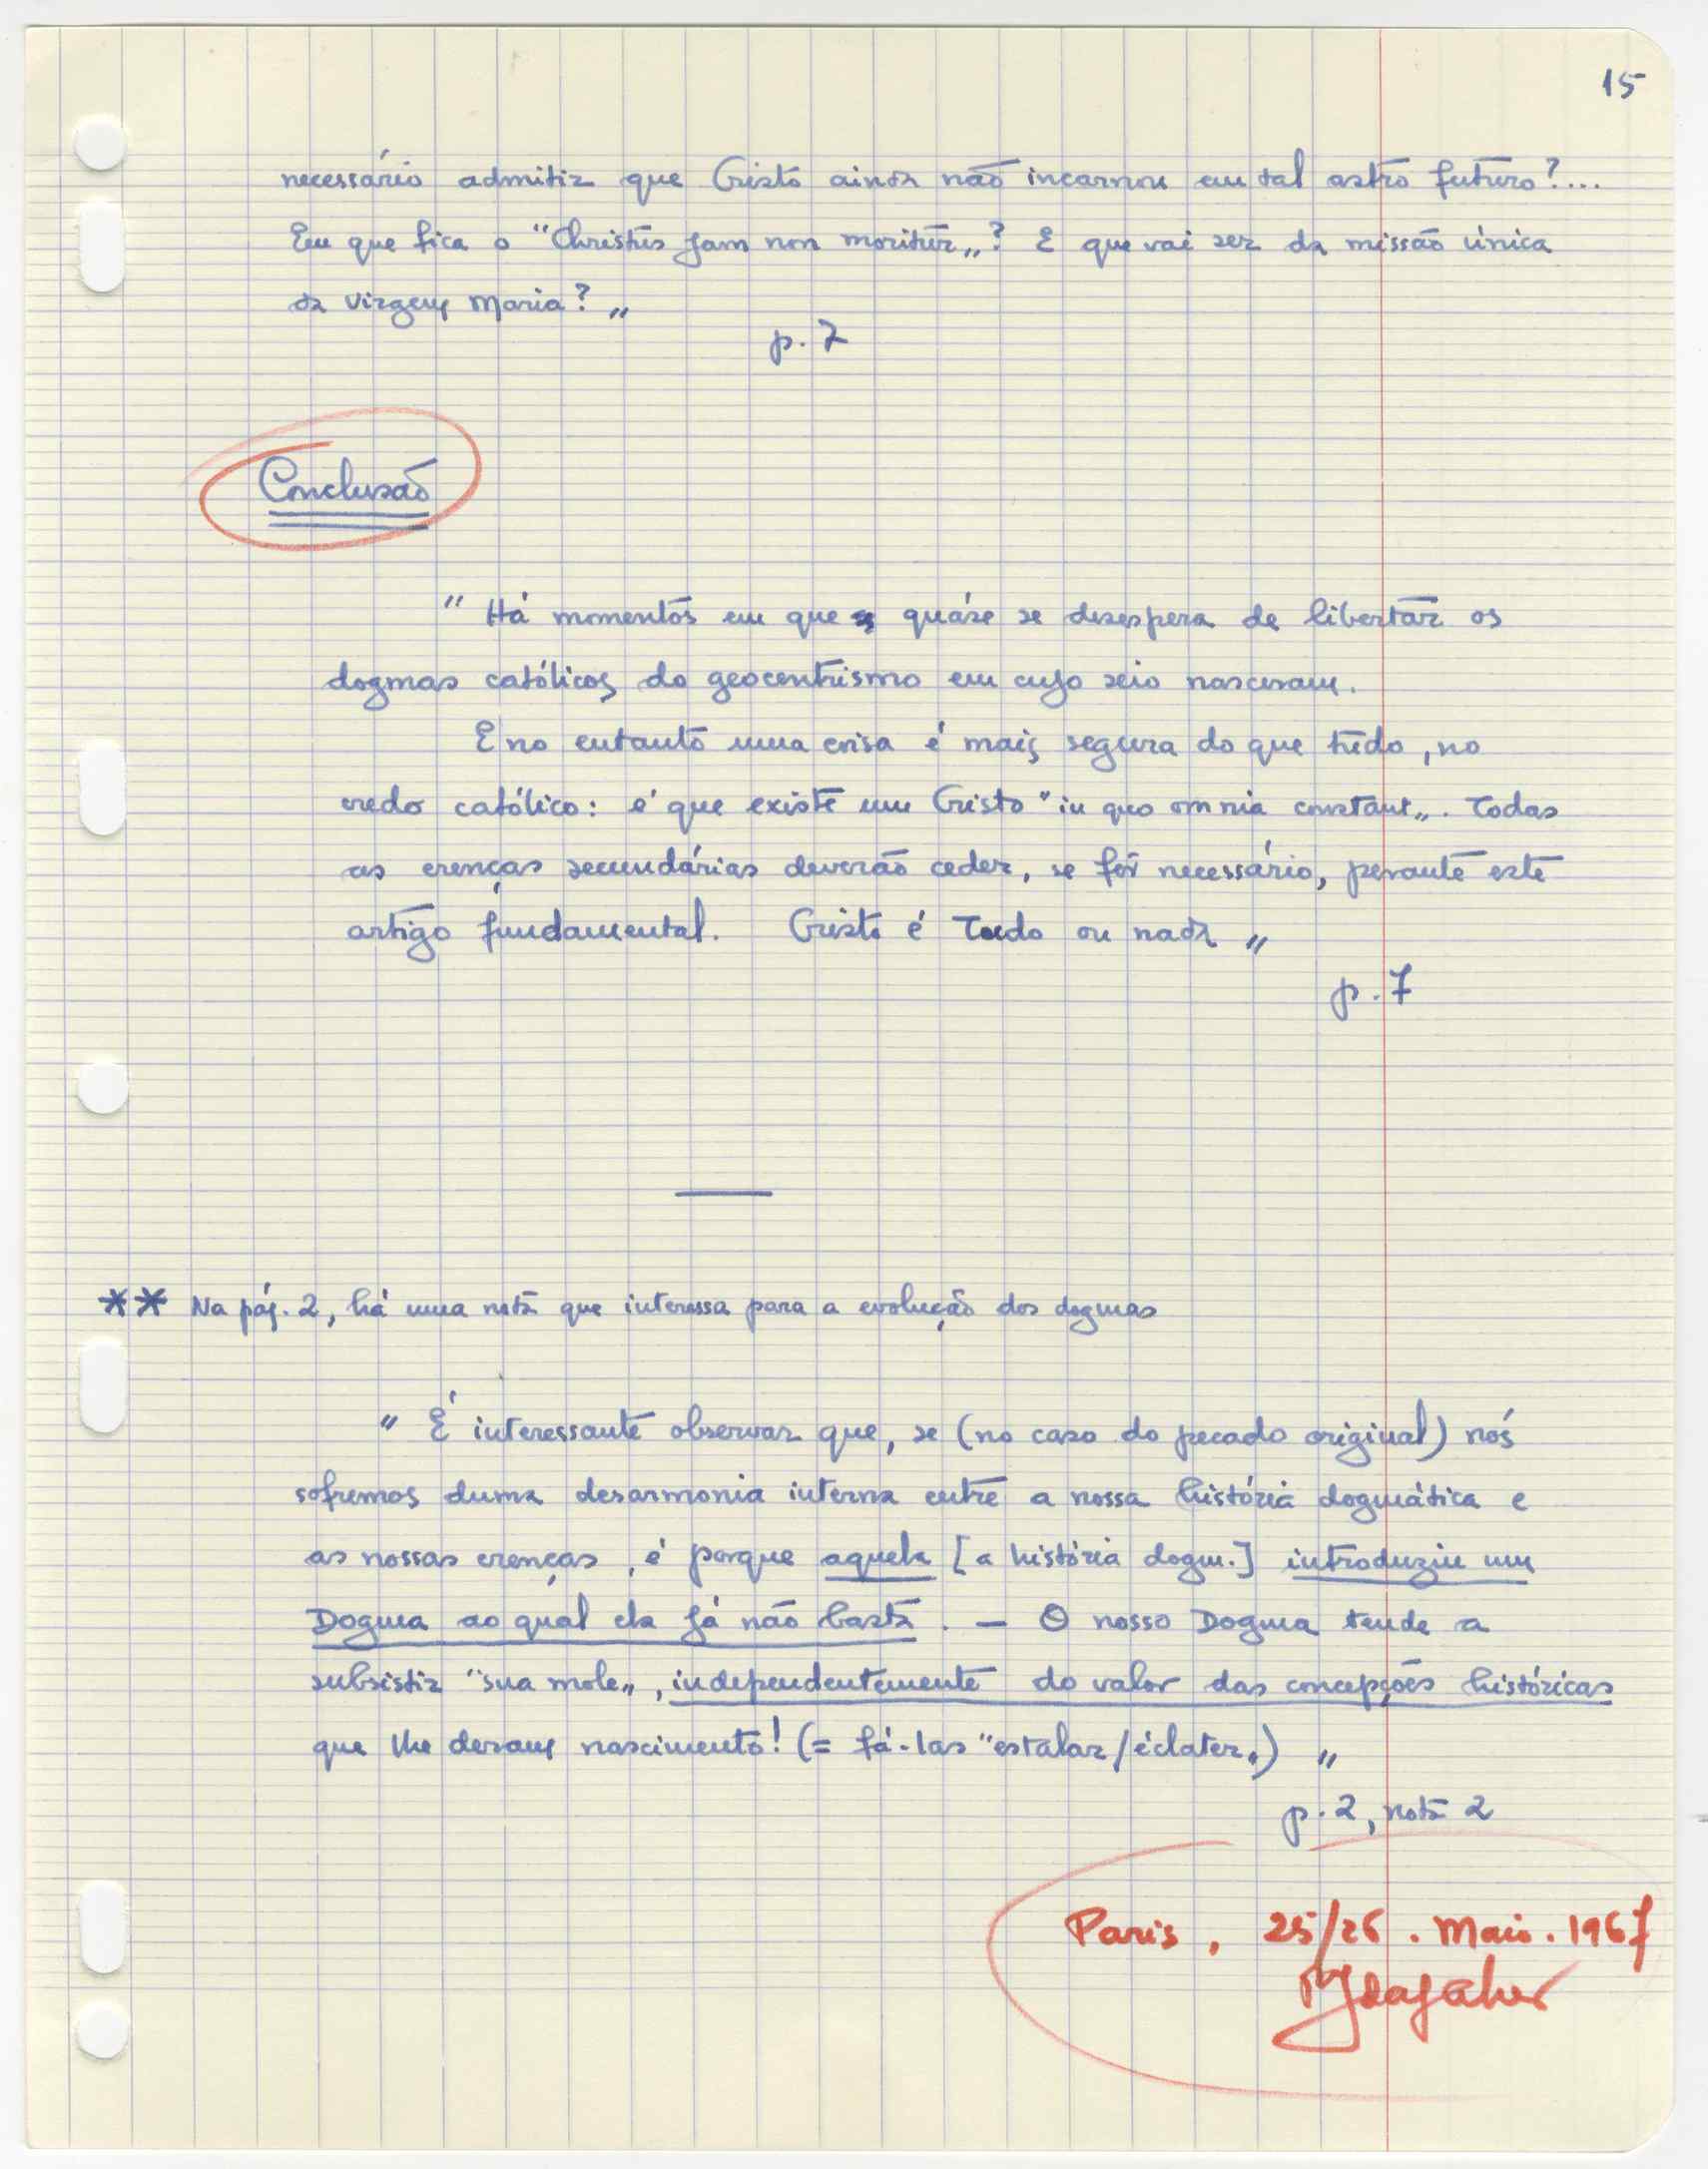 15
necessário admitir que Cristo ainda não incarnou em tal astro futuro?...
Em que fica o "Christus jam non moritur„? E que vai ser da missão única
da Virgem Maria? „
p. 7
Conclusão
" Há momentos em que quáse se desespera de libertar os
dogmas católicos do geocentrismo em cujo seio nasceram.
E no entanto uma coisa é mais segura do que tudo, no
credo católico: é que existe um Cristo "in quo omnia constant„. Todas
as crenças secundárias deverão ceder, se fôr necessário, perante este
artigo fundamental. Cristo é Tudo ou nada „
p. 7
** Na pág. 2, há uma nota que interessa para a evolução dos dogmas
" É interessante observar que, se (no caso do pecado original) nós
sofremos duma desarmonia interna entre a nossa história dogmática e
as nossas crenças, é porque aquela [a história dogm.] introduziu um
Dogma ao qual ela já não basta. — O nosso Dogma tende a
subsistir "sua mole„, independentemente do valor das concepções históricas
que lhe deram nascimento! (= fá-las "estalar/éclater„) „
p. 2, nota 2
Paris, 25/26. Maio. 1967